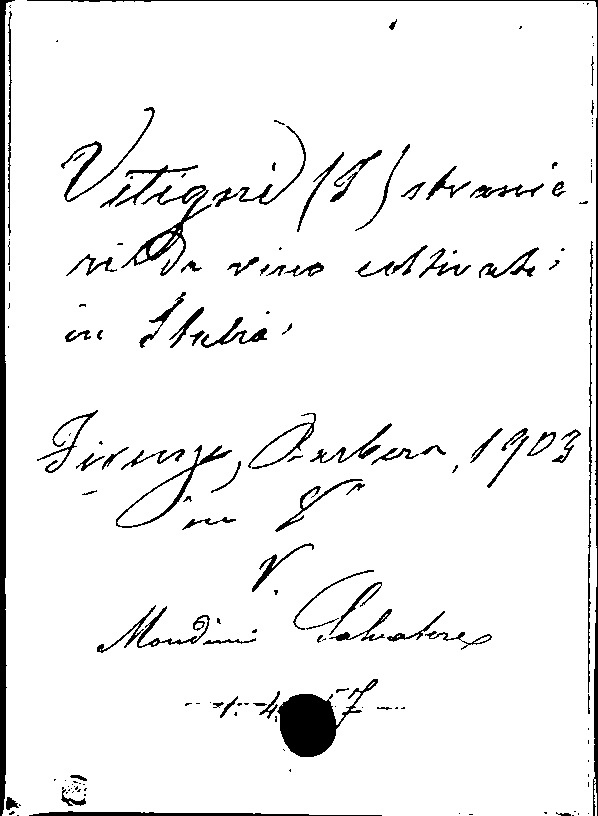 Vitigni (I) stranie-
ri da vino coltivati
in Italia.
Firenze, Barbera, 1903
in 8°
V.
Mondini Salvatore
1. 4. 57